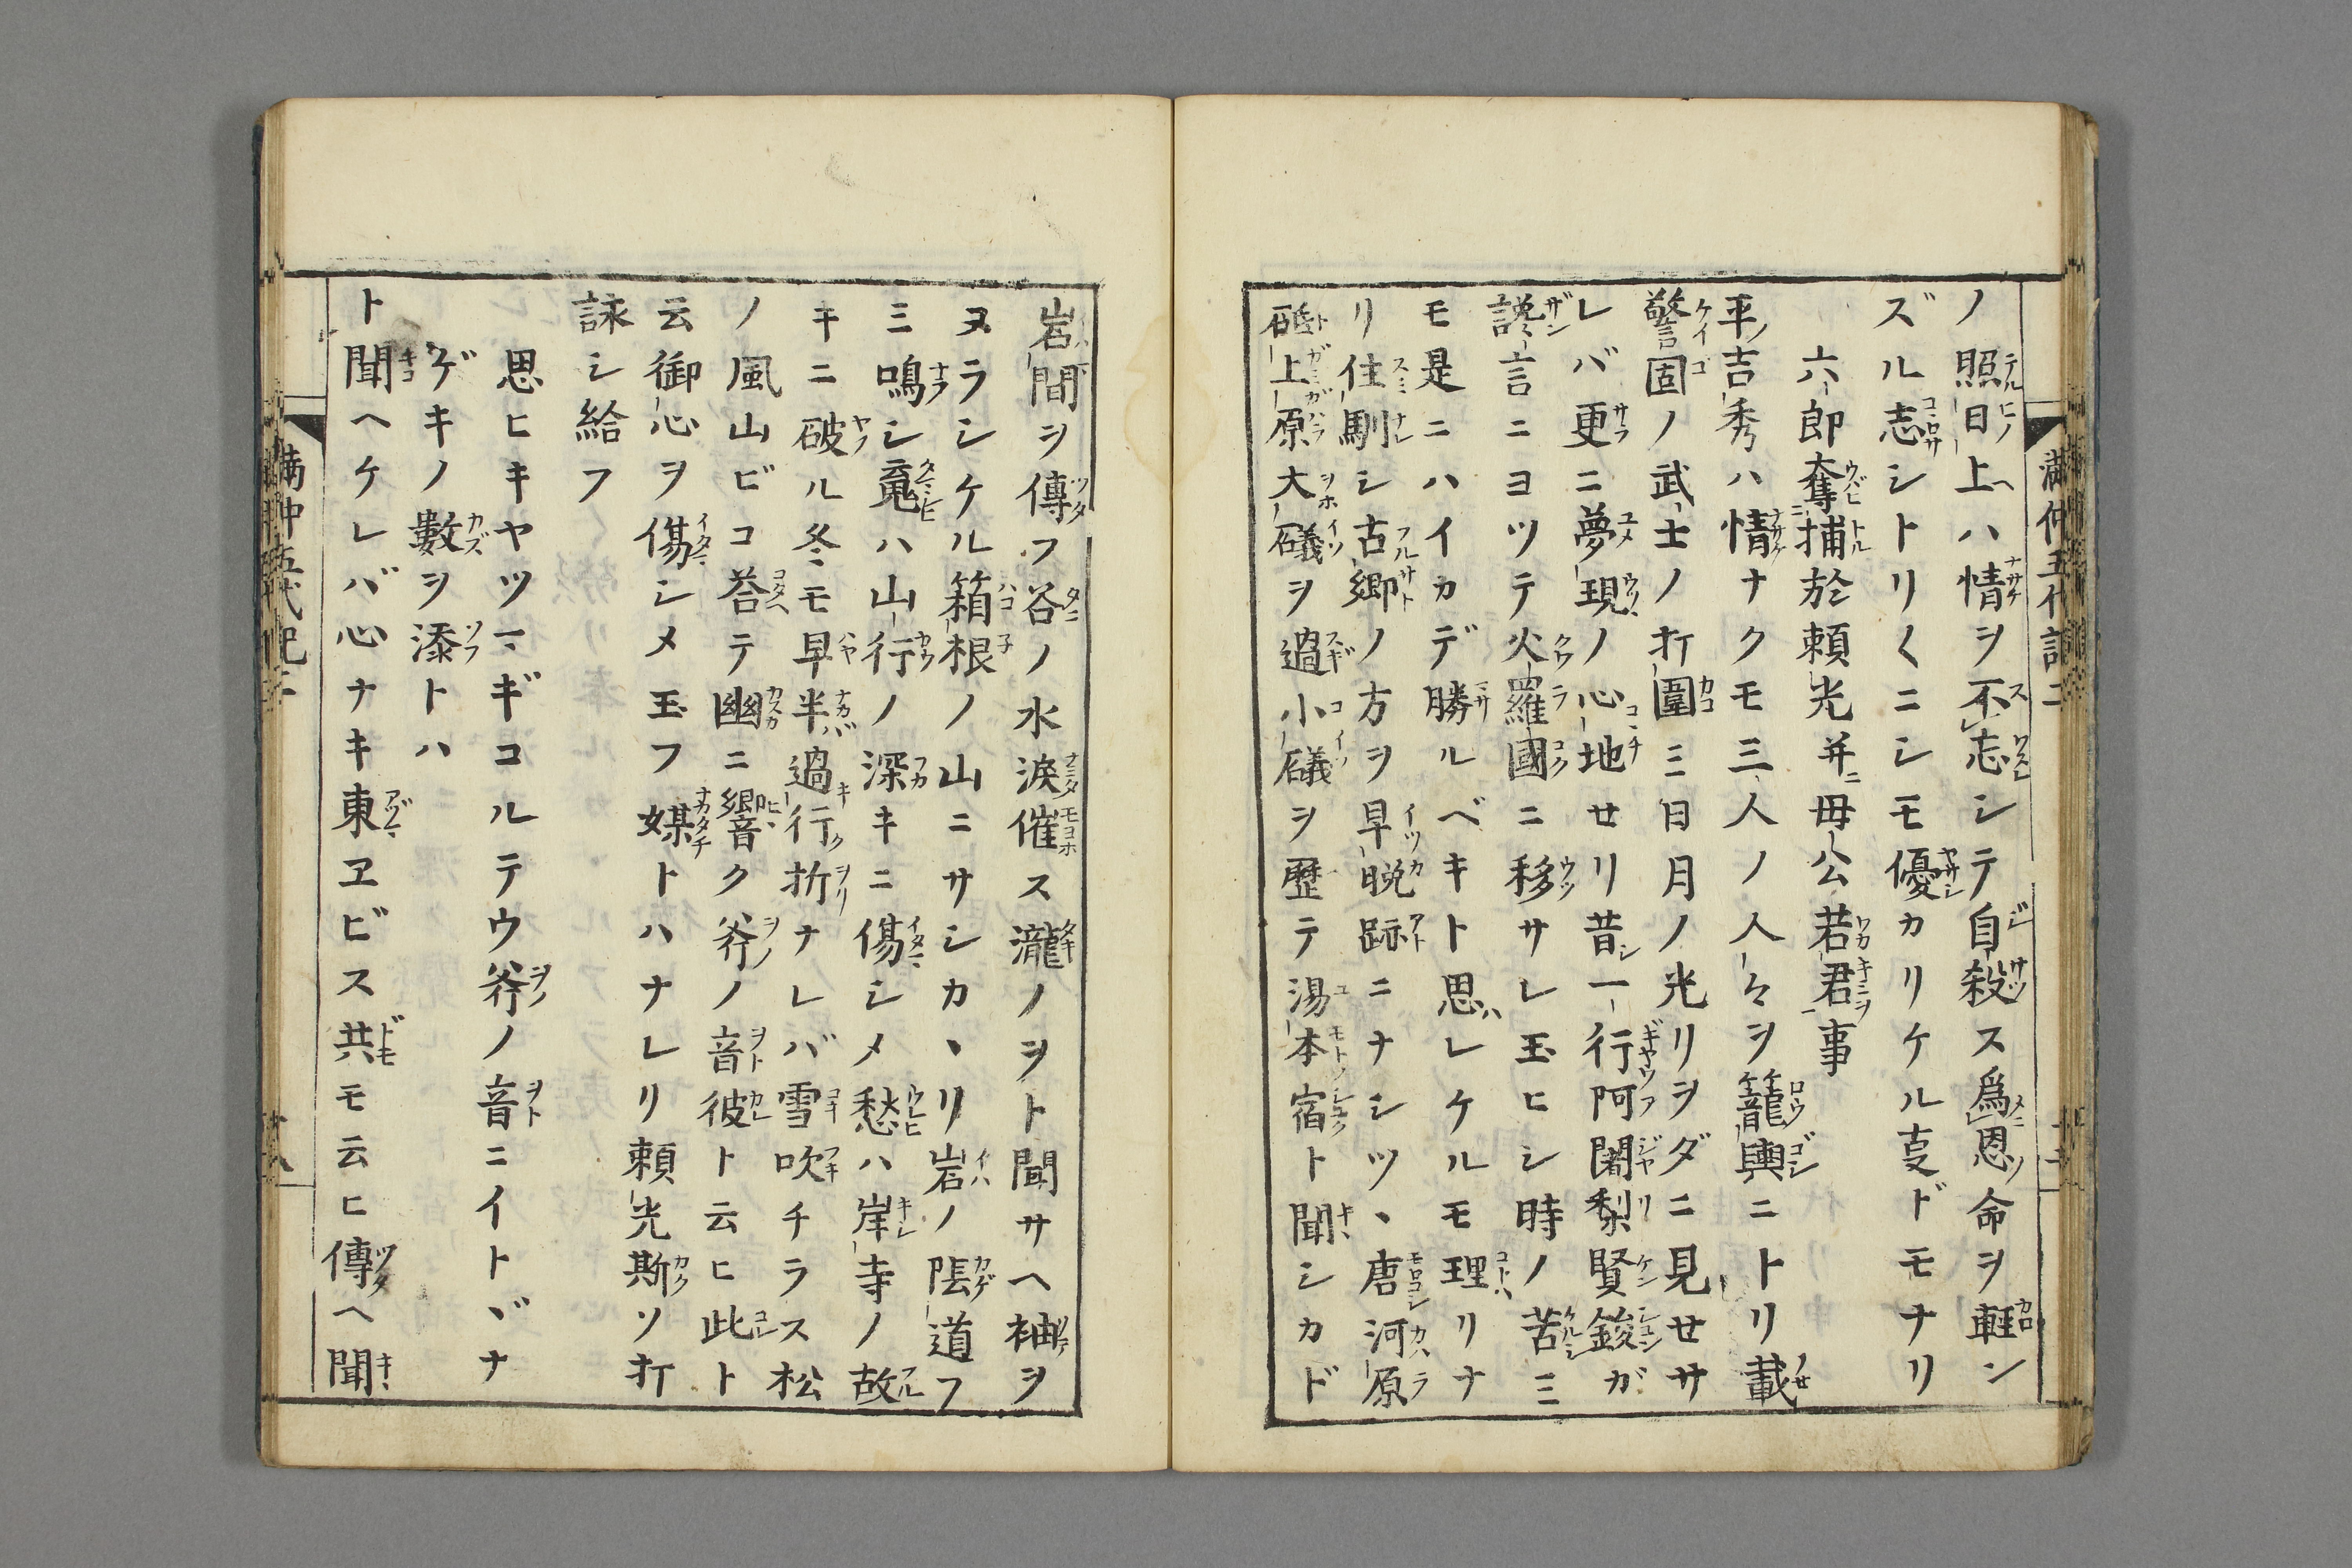 ノ照日上ハ情ヲ不志シテ自殺ス爲恩命ヲ軽ン
ズル志シトリ〱ニシモ優カリケル叓ドモナリ
六郎奪捕於頼光并毋公若君事
平吉秀ハ情ナクモ三人ノ人々ヲ籠輿ニトリ載
警固ノ武士ノ打圍ミ日月ノ光リヲダニ見せサ
レバ更ニ夢現ノ心地せリ昔一行阿闍梨賢鋑ガ
讒言ニヨツテ火羅國ニ移サレ玉ヒシ時ノ苦ミ
モ是ニハイカデ勝ルベキト思レケルモ理リナ
リ住馴シ古郷ノ方ヲ早晩跡ニナシツヽ唐河原
砥上原大礒ヲ過小礒ヲ歴テ湯本宿ト聞シカド
岩間ヲ傳フ谷ノ水涙催ス瀧ノヲト聞サヘ袖ヲ
ヌラシケル箱根ノ山ニサシカヽリ岩ノ陰道フ
ミ鳴シ䰟ハ山行ノ深キニ傷シメ愁ハ岸寺ノ故
キニ破ル冬モ早半過行折ナレバ雪吹チラス松
ノ風山ビコ荅テ幽ニ響ク斧ノ音彼ト云ヒ此ト
云御心ヲ傷シメ玉フ媒トハナレリ頼光斯ソ打
詠シ給フ
思ヒキヤツマギコルテウ斧ノ音ニイトヾナ
ゲキノ數ヲ添トハ
ト聞ヘケレバ心ナキ東ヱビス共モ云ヒ傳ヘ聞
満仲五代記二